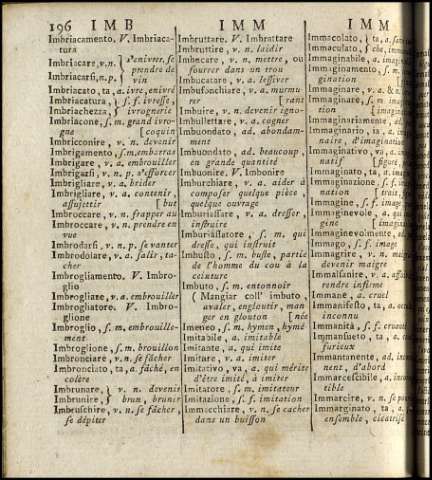 196 IMB IMM IMM
Imbriacamento. V. Imbriaca-
tura
Imbriacare, v.n. } s'enivrer, se
prendre de
Imbriacarsi, n.p. } vin
Imbriacato, ta, a. ivre, enivré
Imbriacatura, } s. f. ivresse,
Imbriachezza, } ivrognerie
Imbriacone, s. m. grand ivro-
gne [coquin
Imbricconire, v. n. devenir
Imbrigamento, s. m. embarras
Imbrigare, v. a. embrouiller
Imbrigarsi, n. p. s'efforcer
Imbrigliare, v. a. brider
Imbrigliare, v. a. contenir,
assujettir [but
Imbroccare, v. n. frapper au
Imbroccare, v. n. prendre en
vue
Imbrodarsi, n. p. se vanter
Imbrodolare, v. a. salir, ta-
cher
Imbrogliamento. V. Imbro-
glio
Imbrogliare, v. a. embrouiller
Imbrogliatore. V. Imbro-
glione
Imbroglio, s. m. embrouille-
ment
Imbroglione, s. m. brouillon
Imbronciare, v. n. se fâcher
Imbronciato, ta, a. fâché, en
colére
Imbrunare, } v. n. devenir
Imbrunire, } brun, brunir
Imbruschire, v. n. se fâcher,
se dépiter
Imbruttare. V. Imbrattare
Imbruttire, v. n. laidir
Imbucare, v. n. mettre, ou
fourrer dans un trou
Imbucatare, v. a. lessiver
Imbufonchiare, v. a. murmu-
rer [rant
Imbuire, v. n. devenir igno-
Imbullettare, v. a. cogner
Imbuondato, ad. abondam-
ment
Imbuondato, ad. beaucoup,
en grande quantité
Imbuonire. V. Imbonire
Imburchiare, v. a. aider à
composer quelque pièce,
quelque ouvrage
Imburiassare, v. a. dresser,
instruire
Imburiassatore, s. m. qui
dresse, qui instruit
Imbusto, s. m. buste, partie
de l'homme du cou à la
ceinture
Imbuto, s. m. entonnoir
( Mangiar coll' imbuto,
avaler, engloutir, man-
ger en glouton [née
Imeneo, s. m. hymen, hymé-
Imitabile, a. imitable
Imitante, a. qui imite
Imitare, v. a. imiter
Imitativo, va, a. qui mérite
d'être imité, à imiter
Imitatore, s. m. imitateur
Imitazione, s. f. imitation
Immacchiare, v. n. se cacher
dans un buisson
Immacolato, ta, a.
Immaculato,
Immaginabile, a.
Immaginamento, s. m.
gination
Immaginare, v. a. &
Immaginare, s. m.
tion
Immaginariamente,
Immaginario, ia,
naire, d'imagination
Immaginativo,
natif [figuré,
Immaginato, ta, a.
Immaginazione, s. f.
nation
Immagine, s. f. image
Immaginevole, a.
giné
Immaginevolmente,
Immago, s. f. image
Immagrire, v. n.
devenir maigre
Immalsanire, v. a.
rendre infirme
Immane, a. cruel
Immanifesto, ta, a.
inconnu
Immanità, s. f.
Immansueto, ta, a.
furieux
Immantenente, ad.
nent, d'abord
Immarcescibile, a.
tible
Immarcire, v. n. se
Immarginato, ta, a.
ensemble, cicatrisé